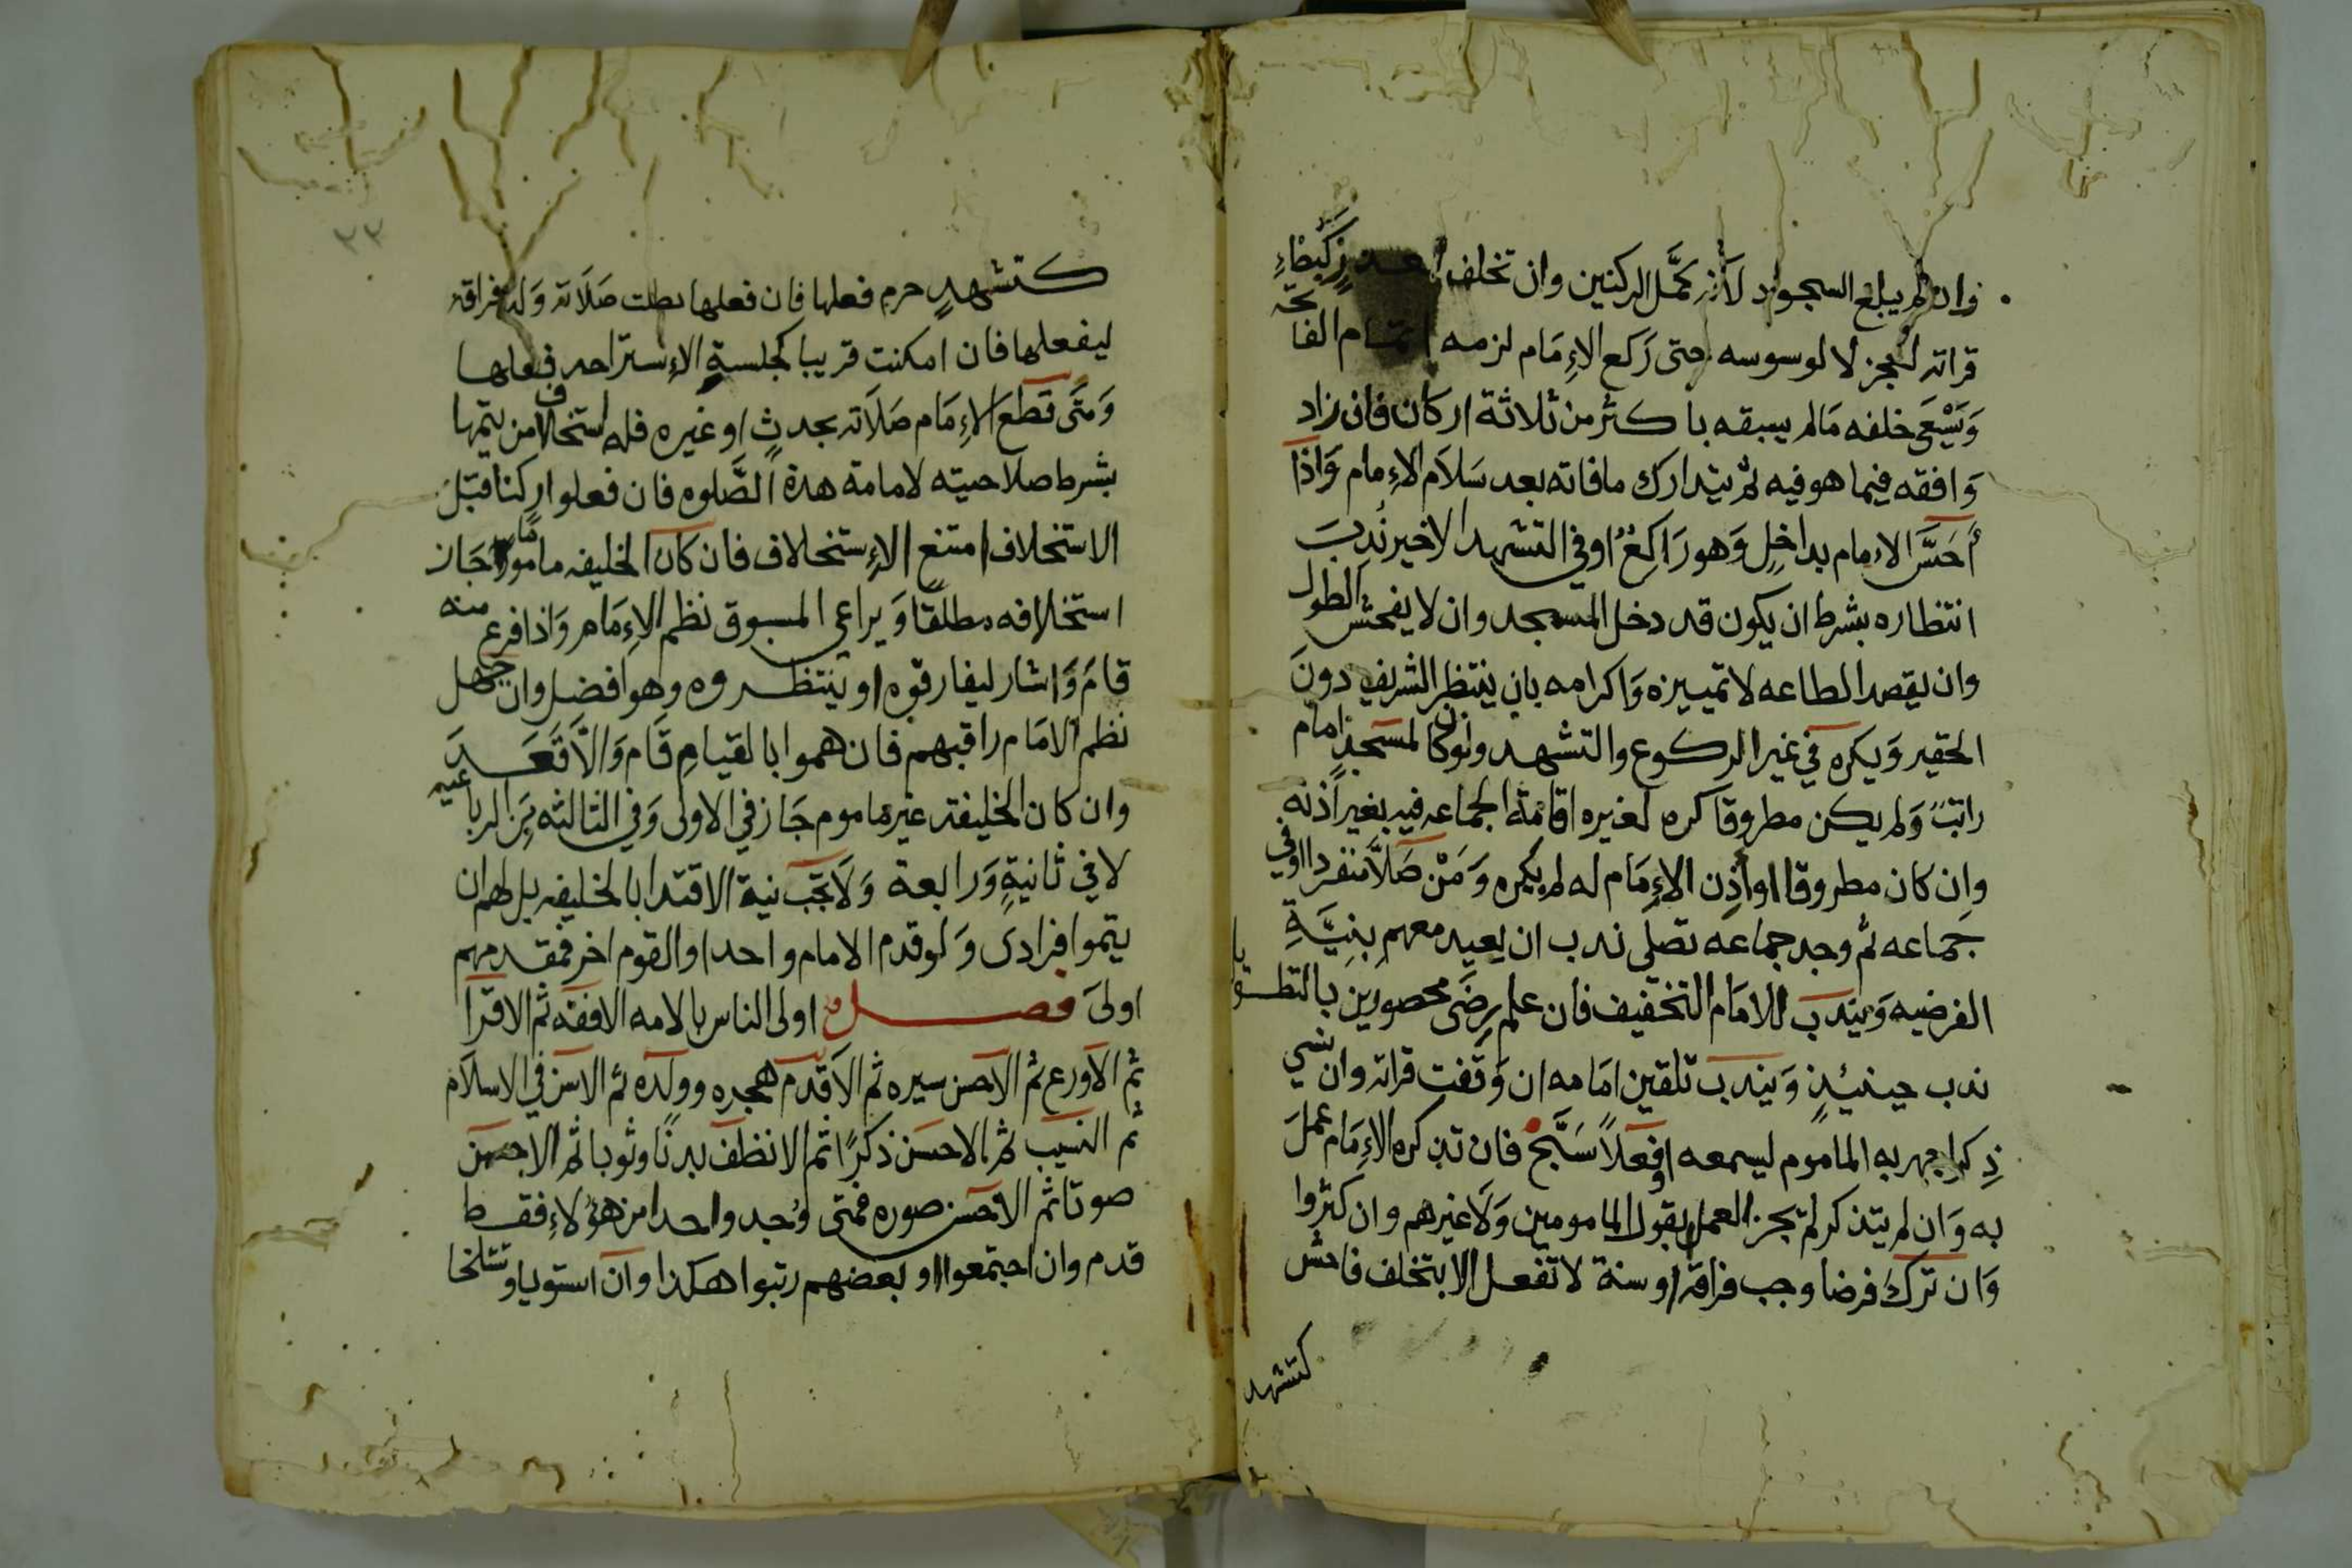 وان لم يبلغ السجود لانه كمَّل الركنين وان تخلف بعذرٍ كَبُطْاءِ
قراته لعجز لا لوسوسه حتى رَكع الاِمَام لزمه اتمام الفاتحة
وَيَسْعَى خلفه مَالم يسبقه باكثر من ثلاثة اركان فان زاد
وَافقه فيما هو فيه ثم يتدارك ما فاته بعد سَلاَم الاِمام وَاذا
أحَسَّ الامام بداخِلٍ وَهو رَاكِعٌ او في التشهد الاخير نُدِبَ
انتظاره بشرط ان يكون قد دخل المسجد وان لا يفحش الطول
وان يقصد الطاعه لا تمييزه وَاكرامه بان ينتظر الشريف دونَ
الحقير وَيكره في غير الركوع والتشهد ولو كان لمسجدٍ امام
راتبٌ وَلم يكن مطروقا كره لغيره اقامة الجماعه فيه بغير اذنه
وان كان مطروقا او اَذِن الاِمَام له لم يكره وَمَنْ صَلاَّ منفردا او في
جماعه ثم وجد جماعه تصلي ندب ان يعيد معهم بِنِيَّةِ
الفرضيه وَيندب للامَام التخفيف فان علم رِضَى محصورين بالتطويل
ندب حينئِذٍ وَيندب تلقين امَامه ان وَقفت قراته وان نسي
ذِكرا جهر به الماموم ليسمعه او فعلاً سَبَّحَ فان تذكره الاِمَام عملَ
به وَان لم يتذكر لم يجز العمل بقول المامومين وَلاَ غيرهم وان كثروا
وَان تركَ فرضا وجب فراقه او سنة لا تفعل الا بتخلف فاحش
كتشهد
٢٣
كتشهدٍ حرم فعلها فان فعلها بطلت صَلاَته وَله فراقه
ليفعلها فان امكنت قريبا كجلسةِ الاِستراحه فعلها
وَمتَى قطعَ الاِمَام صَلاَته بحدثٍ او غيره فله استخلاف من يتمها
بشرط صلاحيته لامامة هذة الصَّلوه فان فعلوا ركنا قبل
الاستخلاف امتنع الاِستخلاف فان كان الخليفه ماموما جَاز
استخلافه مطلقًا وَيراعي المسبوق نظم الاِمَام وَاذا فرغ منه
قامَ وَاشار ليفارقوه او ينتظروه وهو افضل وان جهل
نظم الامَام راقبهم فان هموا بالقيامِ قَام وَالاَّ قَعَدَ
وان كان الخليفة غير ماموم جَاز في الاولى وَفي الثالثه مِن الرباعيه
لا في ثانيةٍ وَرابعة وَلاَ تجب نية الاقتدا بالخليفه بل لهم ان
يتموا فرادى وَلو قدم الامام واحدا والقوم اخر فمقدمهم
اولىَ فصل اولى الناس بالامه الافقه ثم الاقرا
ثم الاَورع ثم الاحسن سيره ثم الاَقدم هجره وولده ثم الاسن في الاسلاَم
ثم النسيب ثم الاحسَن ذكرًا ثم الانظف بدنًا وثوبا ثم الاحسن
صوتا ثم الاحسن صوره فمتى وُجد واحدا من هؤلاءِ فقط
قدم وان اجتمعوا او بعضهم رتبوا هكذا وان استويا وتشاحا